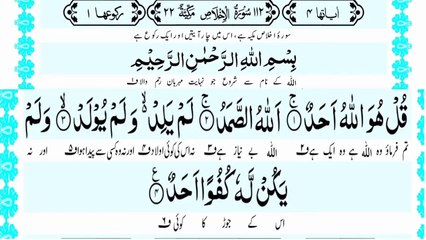 اٰیاتها ۴ ۱۱۲ سُوْرَةُ الْاِخْلَاصِ مَكِّیَّةٌ ۲۲ رکوعها ۱
سورۂ اخلاص مکیہ ہے، اس میں چار آیتیں اور ایک رکوع ہے
بِسْمِ اللّٰهِ الرَّحْمٰنِ الرَّحِیْمِ
اللہ کے نام سے شروع جو نہایت مہربان رحم والا ف
قُلْ هُوَ اللّٰهُ اَحَدٌۚ۝۱ اَللّٰهُ الصَّمَدُۚ۝۲ لَمْ یَلِدْ ۙ۬ وَ لَمْ یُوْلَدْۙ۝۳ وَ لَمْ
تم فرماؤ وہ اللہ ہے وہ ایک ہے ف اللہ بے نیاز ہے ف نہ اس کی کوئی اولاد ف اور نہ وہ کسی سے پیدا ہوا ف اور نہ
یَكُنْ لَّهٗ كُفُوًا اَحَدٌ۠۝۴
اس کے جوڑ کا کوئی ف